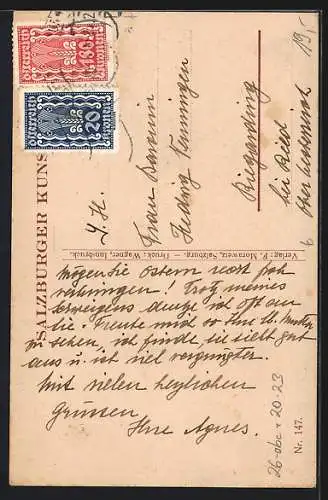 österreich
180
Kronen
österreich
20
SALZBURGER KUNS
I. H.
Frau Baronin
Hedwig
bei Ried
Ober
19,-
Verlag: F. Morawetz, Salzburg. — Druck: Wagner, Innsbruck.
Mögen Sie Ostern recht froh
verbringen! Trotz meines
Schweigens denke ich oft an
Sie. Freute mich so Ihre Mutter
zu sehen, ich finde sie sieht gut
aus u. ist viel vergnügter.
Mit vielen herzlichen
Grüssen
Ihre Agnes.
26-abc + 20-23
Nr. 147.